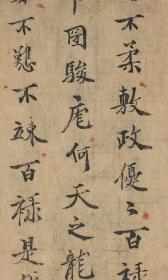 不柔敷政優〻百禄
下国駿厖何天之龍
不戁不竦百禄是